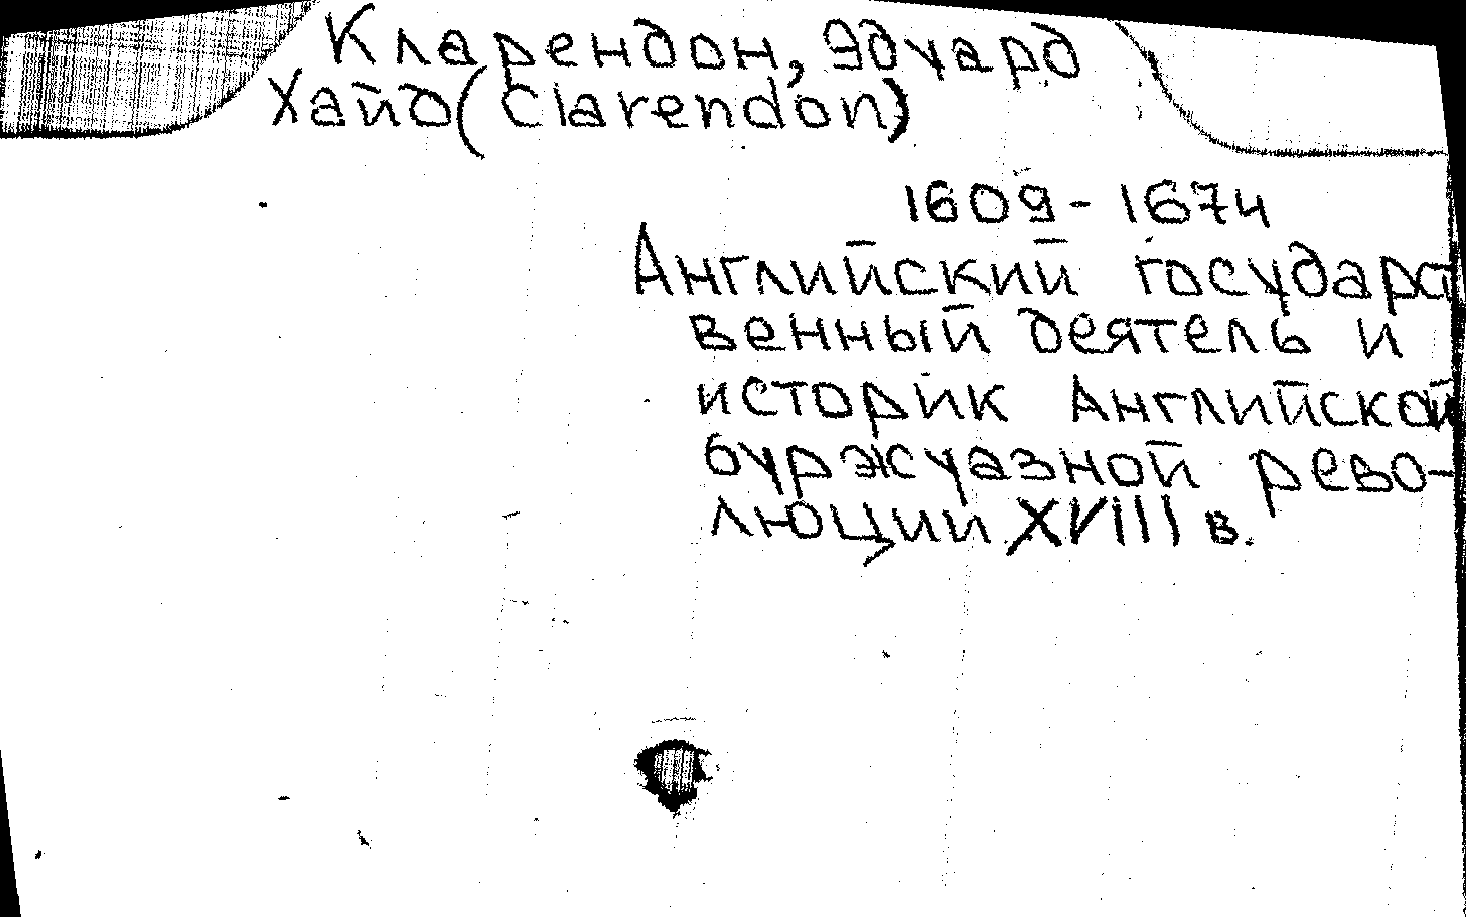 Кларендон, Эдуард
Хайд (Clarendon)
1609-1674
Английский государс
венный деятель и
историк Английской
буржуазной рево-
люции XVIII в.